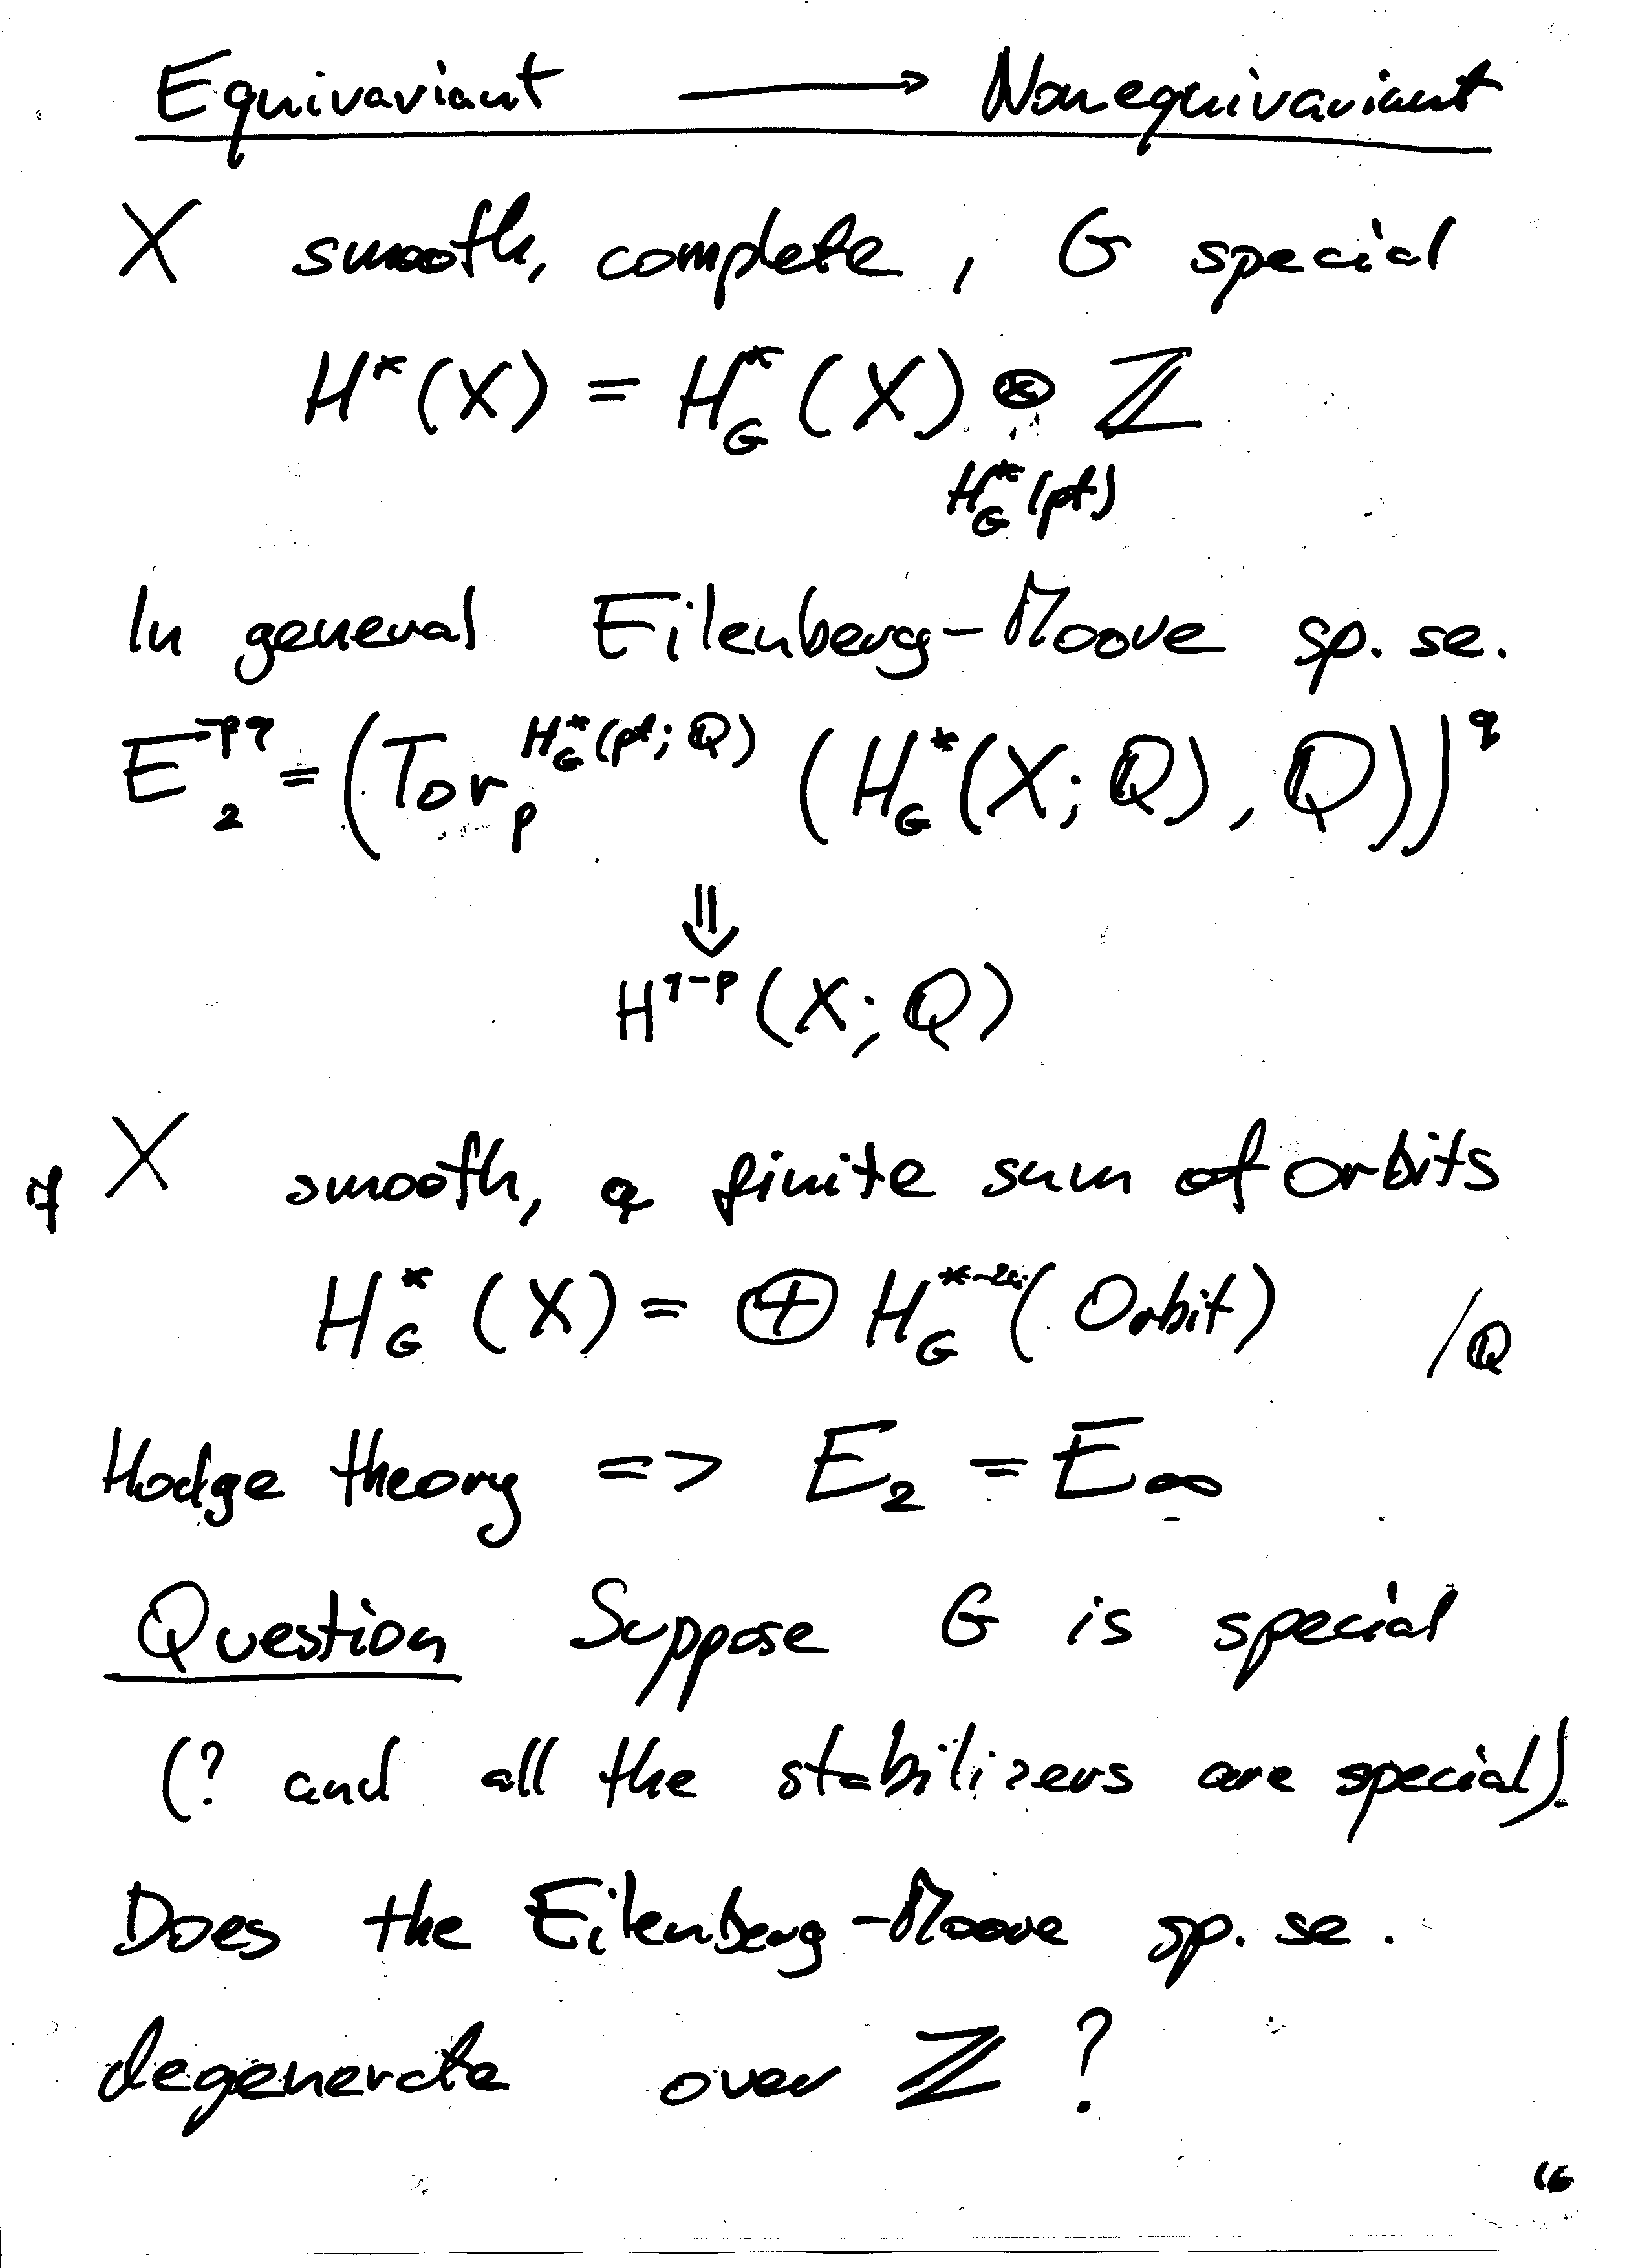 Equivariant ⟶ Nonequivariant
X smooth, complete, G special
H*(X) = H*_G(X) ⊗ ℤ
H*_G(pt)
In general Eilenberg-Moore sp. se.
E_2^{-p q} = (Tor_p^{H*_G(pt; ℚ)} (H*_G(X; ℚ), ℚ))^q
⇓
H^{q-p}(X; ℚ)
if X smooth, a finite sum of orbits
H*_G(X) = ⊕ H_G^{*-2c}(Orbit) /ℚ
Hodge theory => E_2 = E_∞
Question Suppose G is special
(? and all the stabilizers are special).
Does the Eilenberg-Moore sp. se.
degenerate over ℤ ?
16